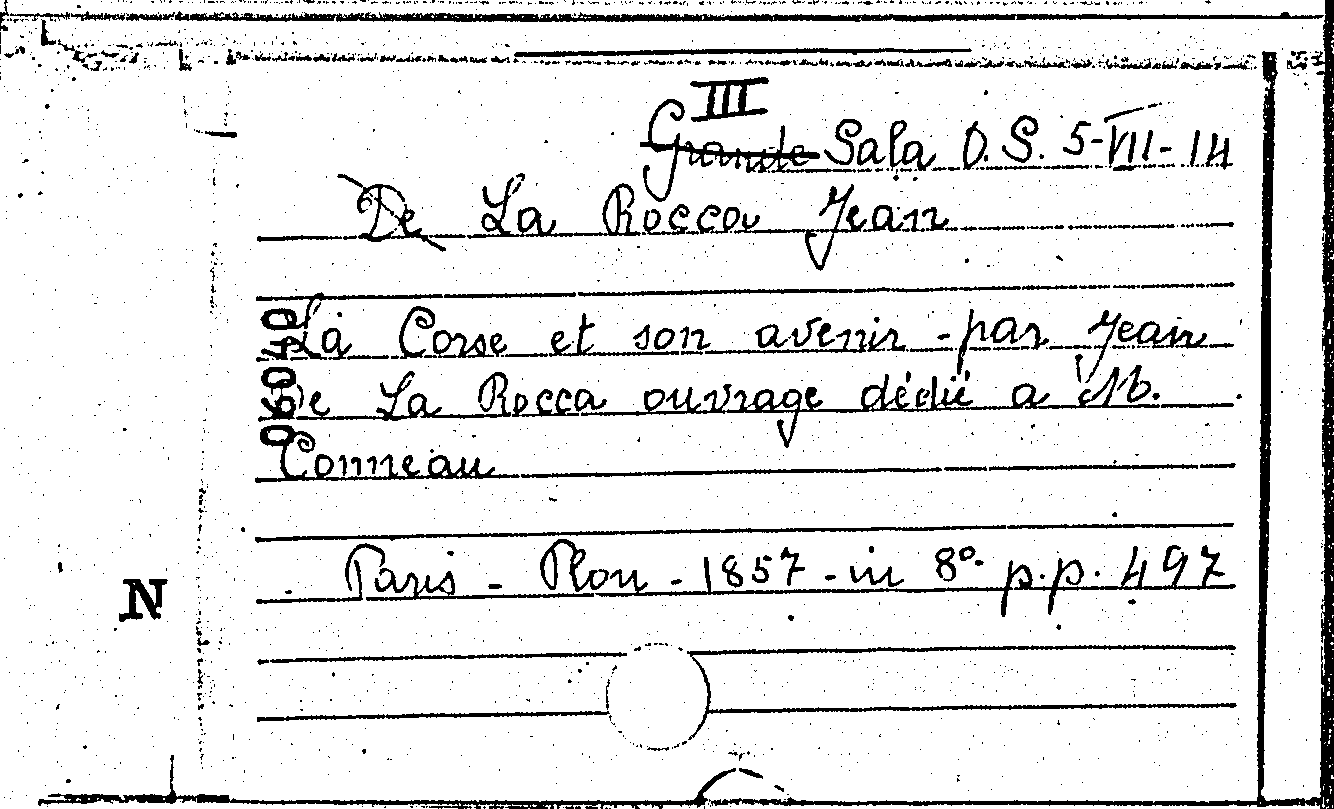 III
Grande Sala D.S. 5-VII-14
De La Rocca Jean
La Corse et son avenir - par Jean
De La Rocca ouvrage dédié a M.
Conneau
Paris - Plon - 1857 - in 8º p.p. 497
06040
N